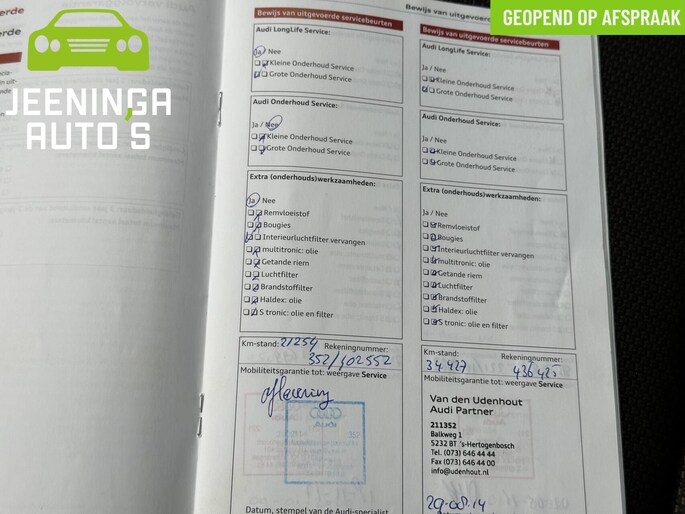 JEENINGA
AUTO'S
GEOPEND OP AFSPRAAK
erde
Bewijs van uitgevoerde servicebeurten
Audi LongLife Service:
Ja / Nee
Kleine Onderhoud Service
Grote Onderhoud Service
Audi Onderhoud Service:
Ja / Nee
Kleine Onderhoud Service
Grote Onderhoud Service
Extra (onderhouds)werkzaamheden:
Ja / Nee
Remvloeistof
Bougies
Interieurluchtfilter vervangen
multitronic: olie
Getande riem
Luchtfilter
Brandstoffilter
Haldex: olie
S tronic: olie en filter
Km-stand: 21254 Rekeningnummer:
352/102552
Mobiliteitsgarantie tot: weergave Service
aflevering
Datum, stempel van de Audi-specialist
Bewijs van uitgevoerde
Bewijs van uitgevoerde servicebeurten
Audi LongLife Service:
Ja / Nee
Kleine Onderhoud Service
Grote Onderhoud Service
Audi Onderhoud Service:
Ja / Nee
Kleine Onderhoud Service
Grote Onderhoud Service
Extra (onderhouds)werkzaamheden:
Ja / Nee
Remvloeistof
Bougies
Interieurluchtfilter vervangen
multitronic: olie
Getande riem
Luchtfilter
Brandstoffilter
Haldex: olie
S tronic: olie en filter
Km-stand: Rekeningnummer:
34.427 436425
Mobiliteitsgarantie tot: weergave Service
Van den Udenhout
Audi Partner
211352
Balkweg 1
5232 BT 's-Hertogenbosch
Tel. (073) 646 44 44
Fax (073) 646 44 00
info@udenhout.nl
29-08-14